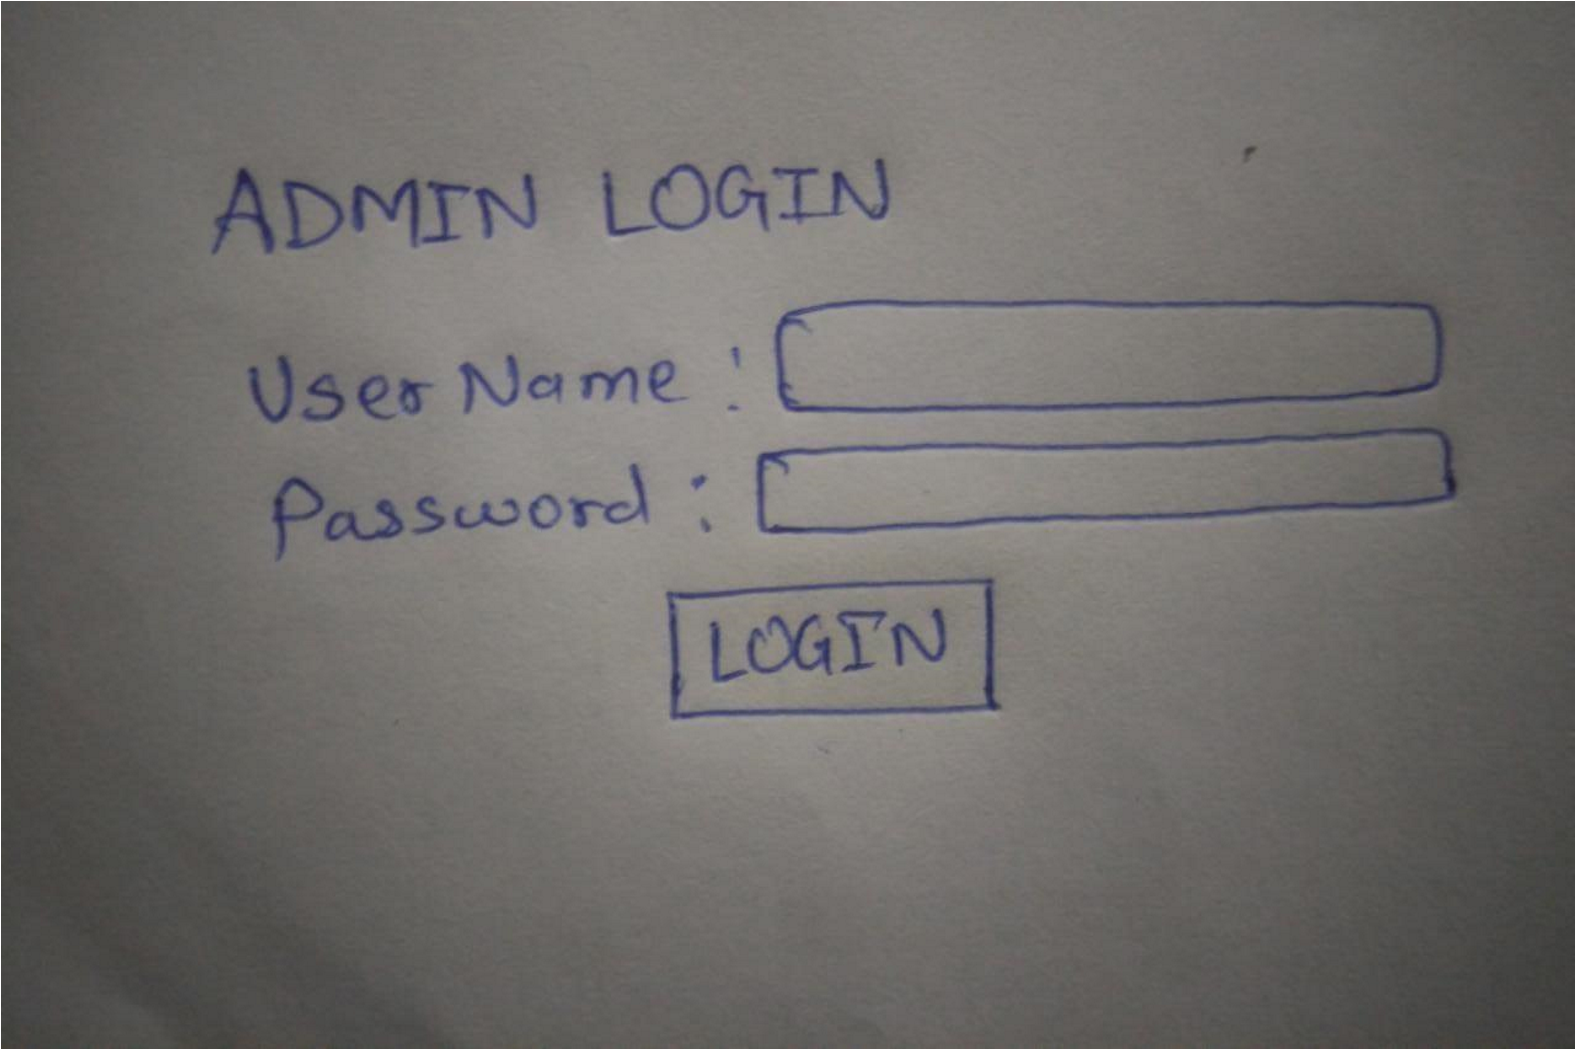 ADMIN LOGIN
User Name :
Password :
LOGIN